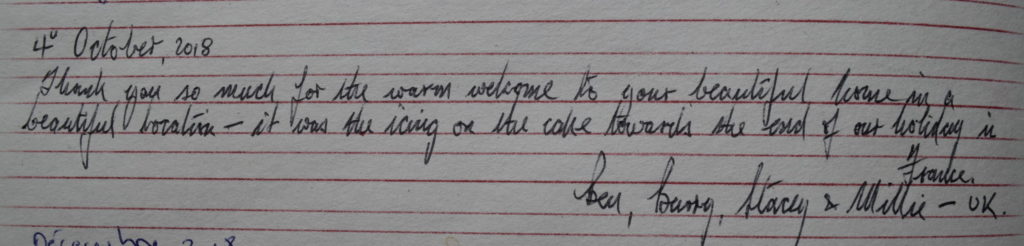 4th October, 2018
Thank you so much for the warm welcome to your beautiful home in a
beautiful location – it was the icing on the cake towards the end of our holiday in
France.
Ben, Barry, Stacey & Millie – UK.
Décembre 2018